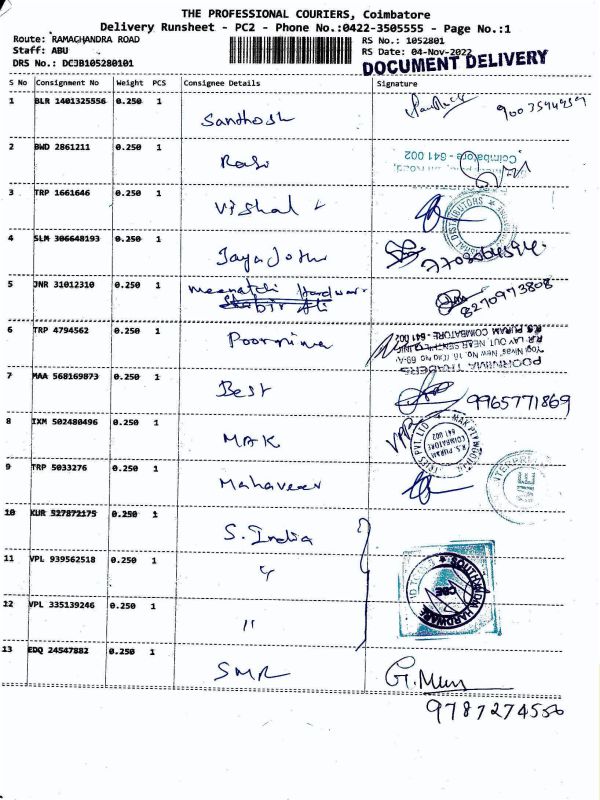 THE PROFESSIONAL COURIERS, Coimbatore
Delivery Runsheet - PC2 - Phone No.:0422-3505555 - Page No.:1
Route: RAMACHANDRA ROAD
Staff: ABU
DRS No.: DC3B105280101
RS No.: 1052801
RS Date: 04-Nov-2022
DOCUMENT DELIVERY
S No Consignment No Weight PCS Consignee Details Signature
1 BLR 1401325556 0.250 1 Santhosh
2 BWD 2861211 0.250 1 Coimbatore - 641 002
3 TRP 1661646 0.250 1 Vishal
4 SLM 306648193 0.250 1 Jaya Jothi
5 JNR 31012310 0.250 1 Meenatchi Hardware 8270973808
6 TRP 4794562 0.250 1 Poornima
POORNIMA TRADERS
R.S. PURAM COIMBATORE - 641 002
7 MAA 568169873 0.250 1 Best 9965771869
8 IXM 502480496 0.250 1 MAK
R.S. PURAM COIMBATORE 641 002
9 TRP 5033276 0.250 1 Mahaveer
10 KUR 527872175 0.250 1 S. India
11 VPL 939562518 0.250 1 "
SOUTH INDIA HARDWARE
CBE
12 VPL 335139246 0.250 1 "
13 EDQ 24547882 0.250 1 SMR
9787274550